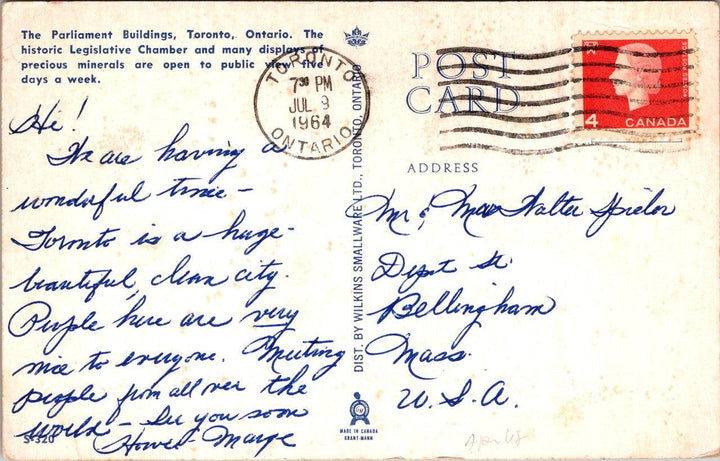 The Parliament Buildings, Toronto, Ontario. The
historic Legislative Chamber and many displays of
precious minerals are open to public view five
days a week.
Hi!
We are having a
wonderful time -
Toronto is a huge -
beautiful, clean city.
People here are very
nice to everyone. Meeting
people from all over the
world - See you soon
Howie Marge
S-320
TORONTO
7 30 PM
JUL 9
1964
ONTARIO
DIST. BY WILKINS SMALLWARE LTD., TORONTO, ONTARIO
POST
CARD
4 CANADA
ADDRESS
Mr & Mrs Walter Spieler
Depot St.
Bellingham
Mass.
U.S.A.
MADE IN CANADA
GRANT-MANN